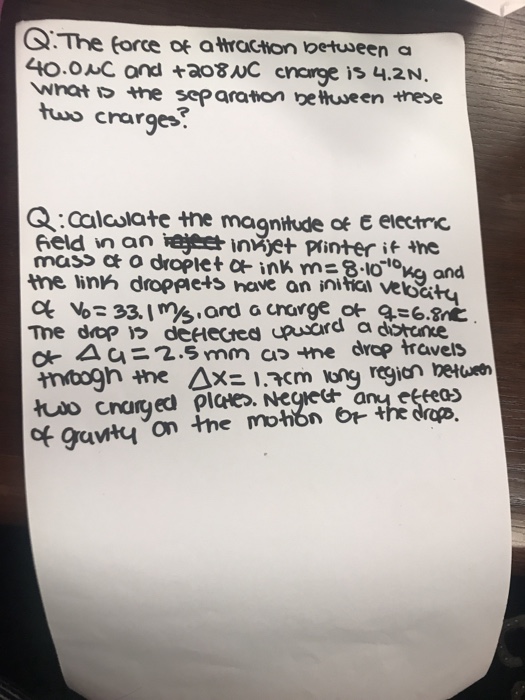 Q: The force of attraction between a
40.0μC and +208 μC charge is 4.2N.
What is the separation bettween these
two charges?
Q: calculate the magnitude of E electric
field in an inkjet printer if the
mass of a droplet of ink m= 8·10⁻¹⁰ kg and
the link dropplets have an initial velocity
of V₀= 33.1 m/s, and a charge of q=6.8nC.
The drop is deflected upward a distance
of Δy=2.5mm as the drop travels
through the Δx= 1.7cm long region between
two charged plates. Neglect any effects
of gravity on the motion of the drops.